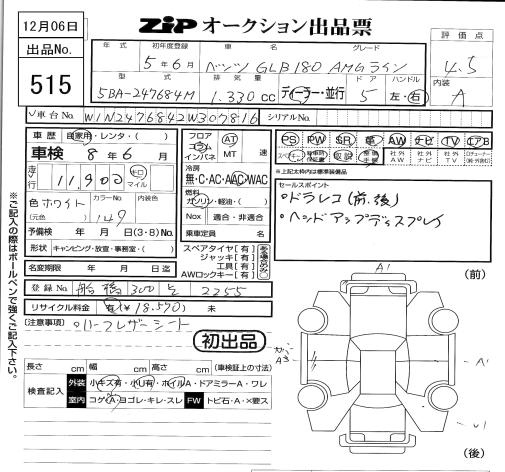 12月06日
ZIP オークション出品票
出品No.
515
評価点
4.5
内装
A
年式 初年度登録 車名 グレード
5年6月 ベンツ GLB180 AMGライン
型式 排気量 ドア ハンドル
5BA-247684M 1.330cc ディーラー・並行 5 左・右
車台No. W1N2476842W307816 シリアルNo.
車歴 自家用・レンタ・( )
車検 8年6月
走行 11,900 キロ マイル
色 ホワイト カラーNo. 149 内装色
(元色 )
予備検 年 月 日(3・8)No.
形状 キャンピング・放宣・事務室・( )
名変期限 年 月 日迄
登録No. 船橋 300 2255
リサイクル料金 有(¥18,570) 未
フロア コラム インパネ AT MT 速
冷房
無・C・AC・AAC・WAC
燃料
ガソリン・軽油・( )
Nox 適合・非適合
乗車定員 名
スペアタイヤ[有]
ジャッキ[有]
工具[有]
AWロックキー[有]
PS PW SR 革 AW ナビ TV エアB
社外AW 社外ナビ 社外TV
※上記太枠内は標準装備品
セールスポイント
ドラレコ(前.後)
ヘッドアップディスプレイ
[注意事項]
ハーフレザーシート
初出品
長さ cm 幅 cm 高さ cm (車検証上の寸法)
検査記入 外装 小キズ有・小U有・ホイルA・ドアミラーA・ワレ
室内 コゲA・ヨゴレ・キレ・スレ FW トビ石・A・×要ス
※ご記入の際はボールペンで強くご記入下さい。
(前)
A1
A3
A1
U1
(後)